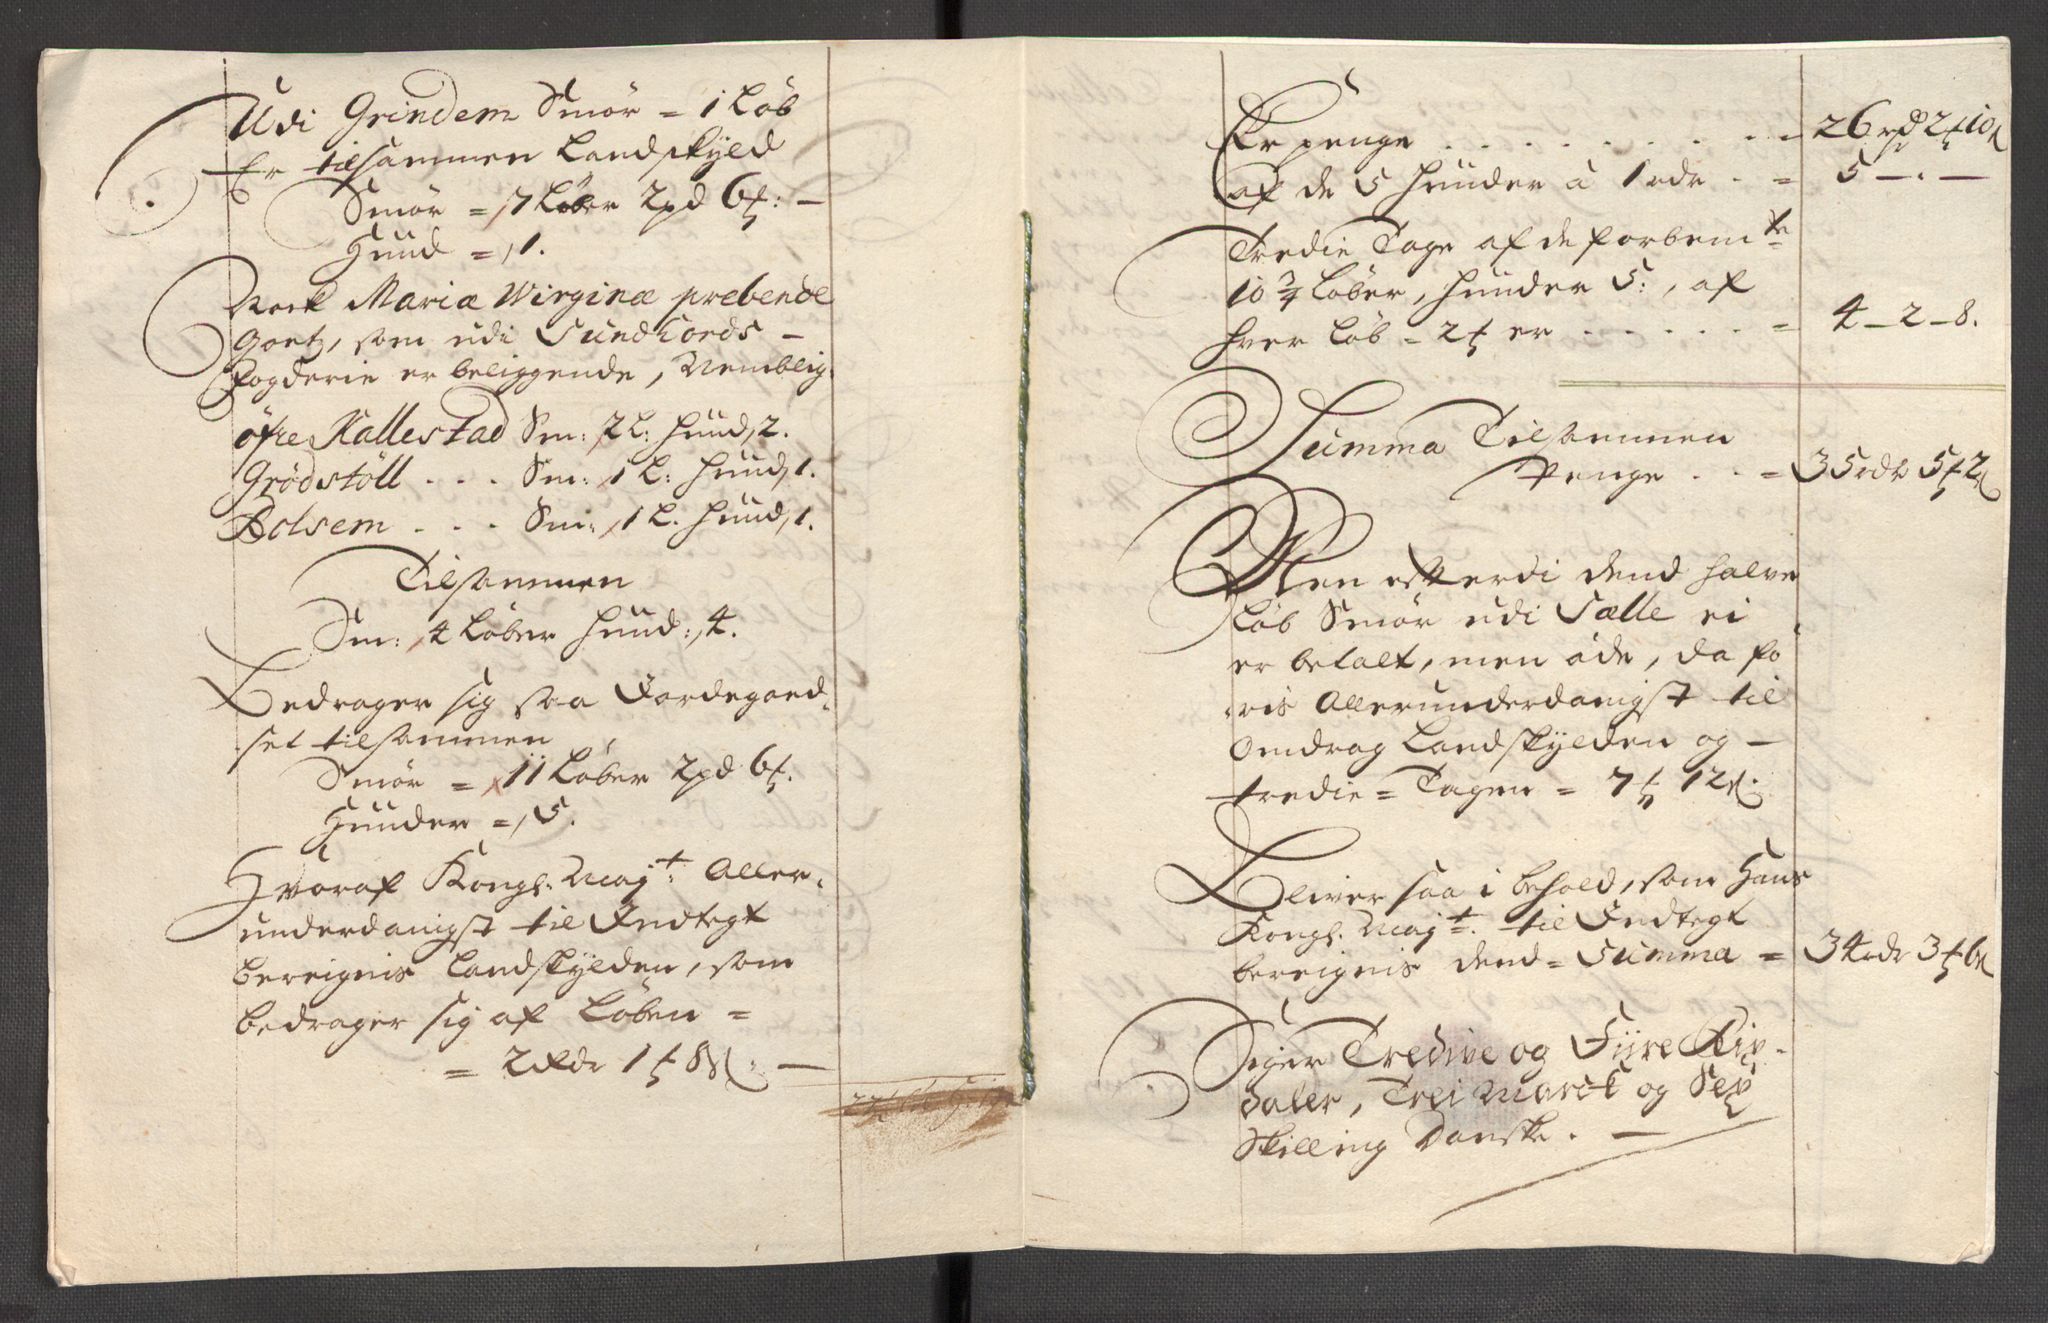 Udi Grindem Smör = 1 Löb
Er tilsammen Landskyld
Smör = 7 Löber 2pd 6 ℔: —
Huud = 1.
Noch Mariæ Wirginæ prebende
Goetz, som udi Sundhords –
fogderie er beliggende, Nemblig.
öfre Hallestad Sm: 2 L: huud, 2.
Grödstöll . . . Sm: 1 L: huud, 1.
Bolsem . . . Sm: 1 L. huud, 1.
Tilsammen
Sm: 4 Löber huud: 4.
Bedrager sig saa Jordegoed-
set tilsammen
Smör = 11 Löber 2pd 6 ℔.
Huuder = 5.
Hvoraf Kongl. Mayt: Aller-
underdanigst til Indtegt
bereignis Landskylden, som
bedrager sig af Löben =
= 2 Rdr 1 ℔ 8 ß: —
Er penge . . . . . . . . = 26 rd 2 ℔ 10 ß
af de 5 huuder à 1 rdr . = 5 – . –
Tredie Tage af de forbemte
10 3/4 Löber, huuder 5:, af
hver Löb = 2 ℔ er . . . . . = 4 – 2 – 8.
Summa Tilsammen
Penge . . = 35 rdr 5 ℔ 2 ß
Men efterdi dend halve
Löb Smör udi Sælle ei
er betalt, men öde, da fo-
ris Allerunderdanigst til
Omdrag Landskylden og –
tredie = Tagen = 7 ℔ 12 ß.
Bliver saa i behold, som Hans
Kongl. Mayt: til Indtegt
bereignis dend = Summa = 34 rdr 3 ℔ 6 ß
Siger Tredive og Fiire Rix-
daler, Trei Marck og Sex
Skilling Danske. —